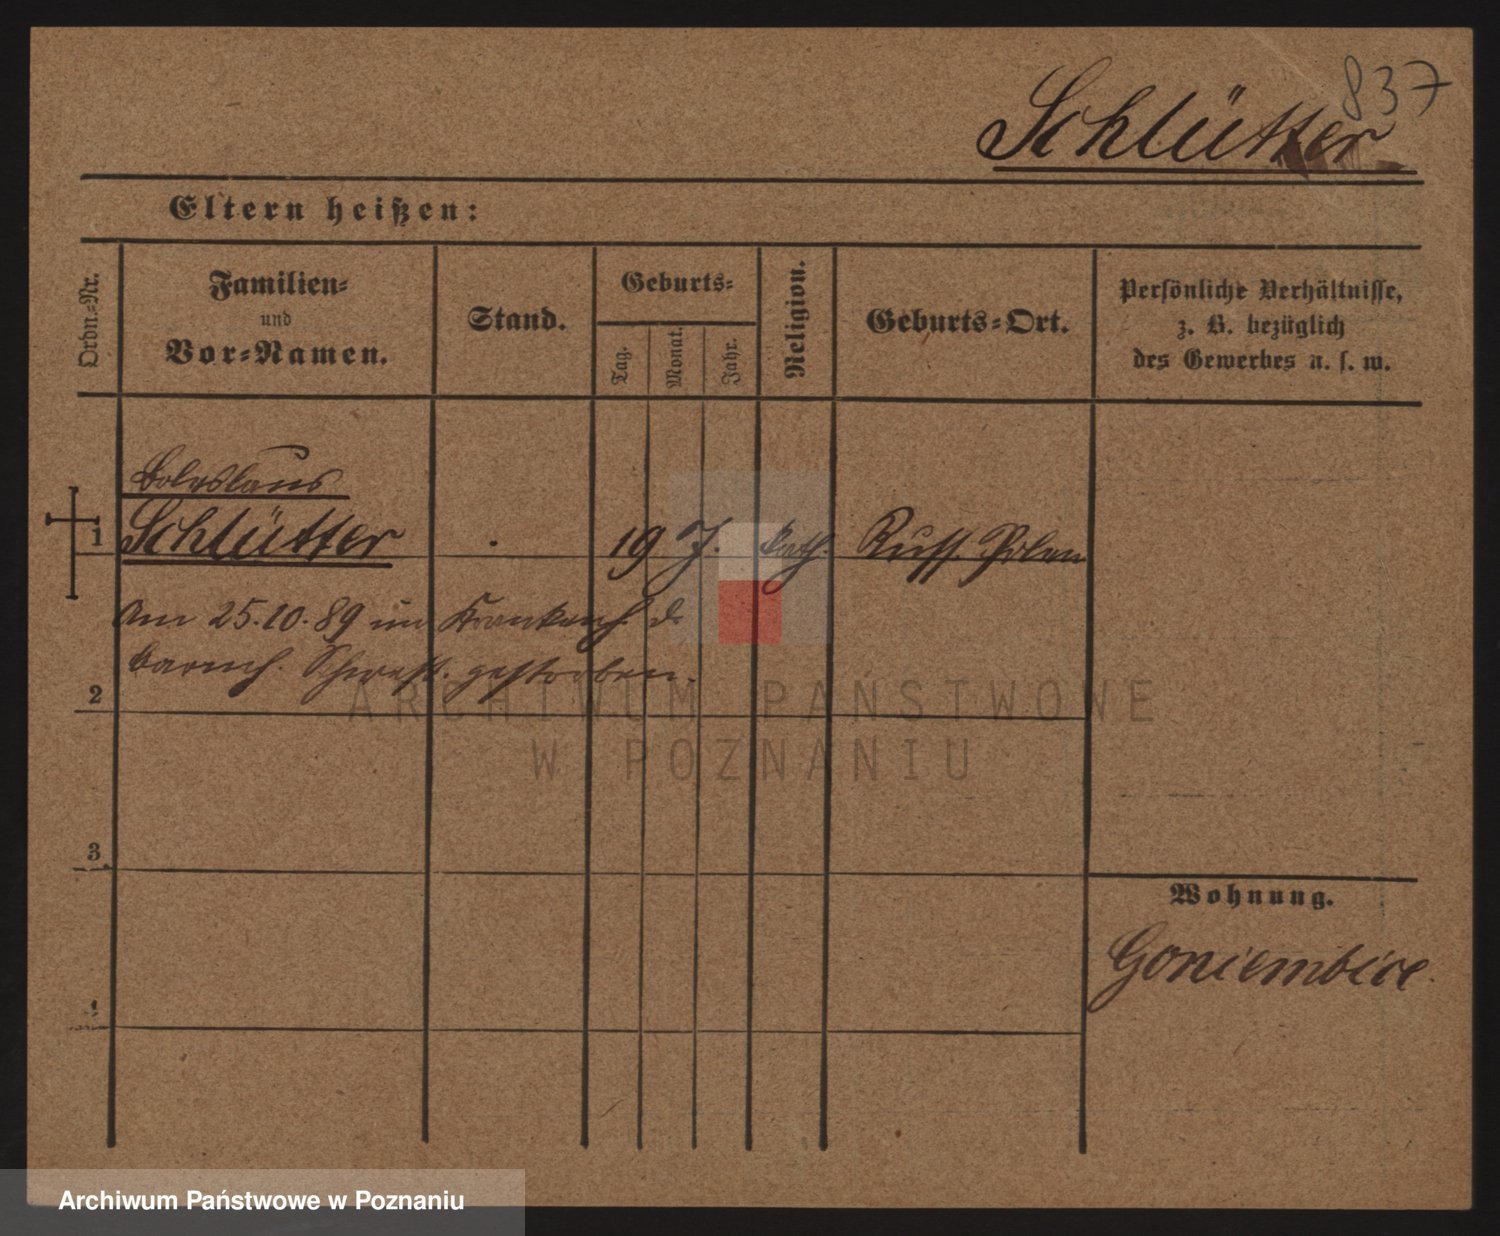 837
Schlütter
Eltern heißen:
Ordn.-Nr.
Familien-
und
Vor-Namen.
Stand.
Geburts-
Tag.
Monat.
Jahr.
Religion.
Geburts-Ort.
Persönliche Verhältnisse,
z. B. bezüglich
des Gewerbes u. s. w.
Boleslaus
1
Schlütter
19 J. kath. Russ. Polen
Am 25.10.89 im Krankenh. d.
barmh. Schwest. gestorben.
2
3
4
Wohnung.
Goniembice
ARCHIWUM PAŃSTWOWE
W POZNANIU
Archiwum Państwowe w Poznaniu